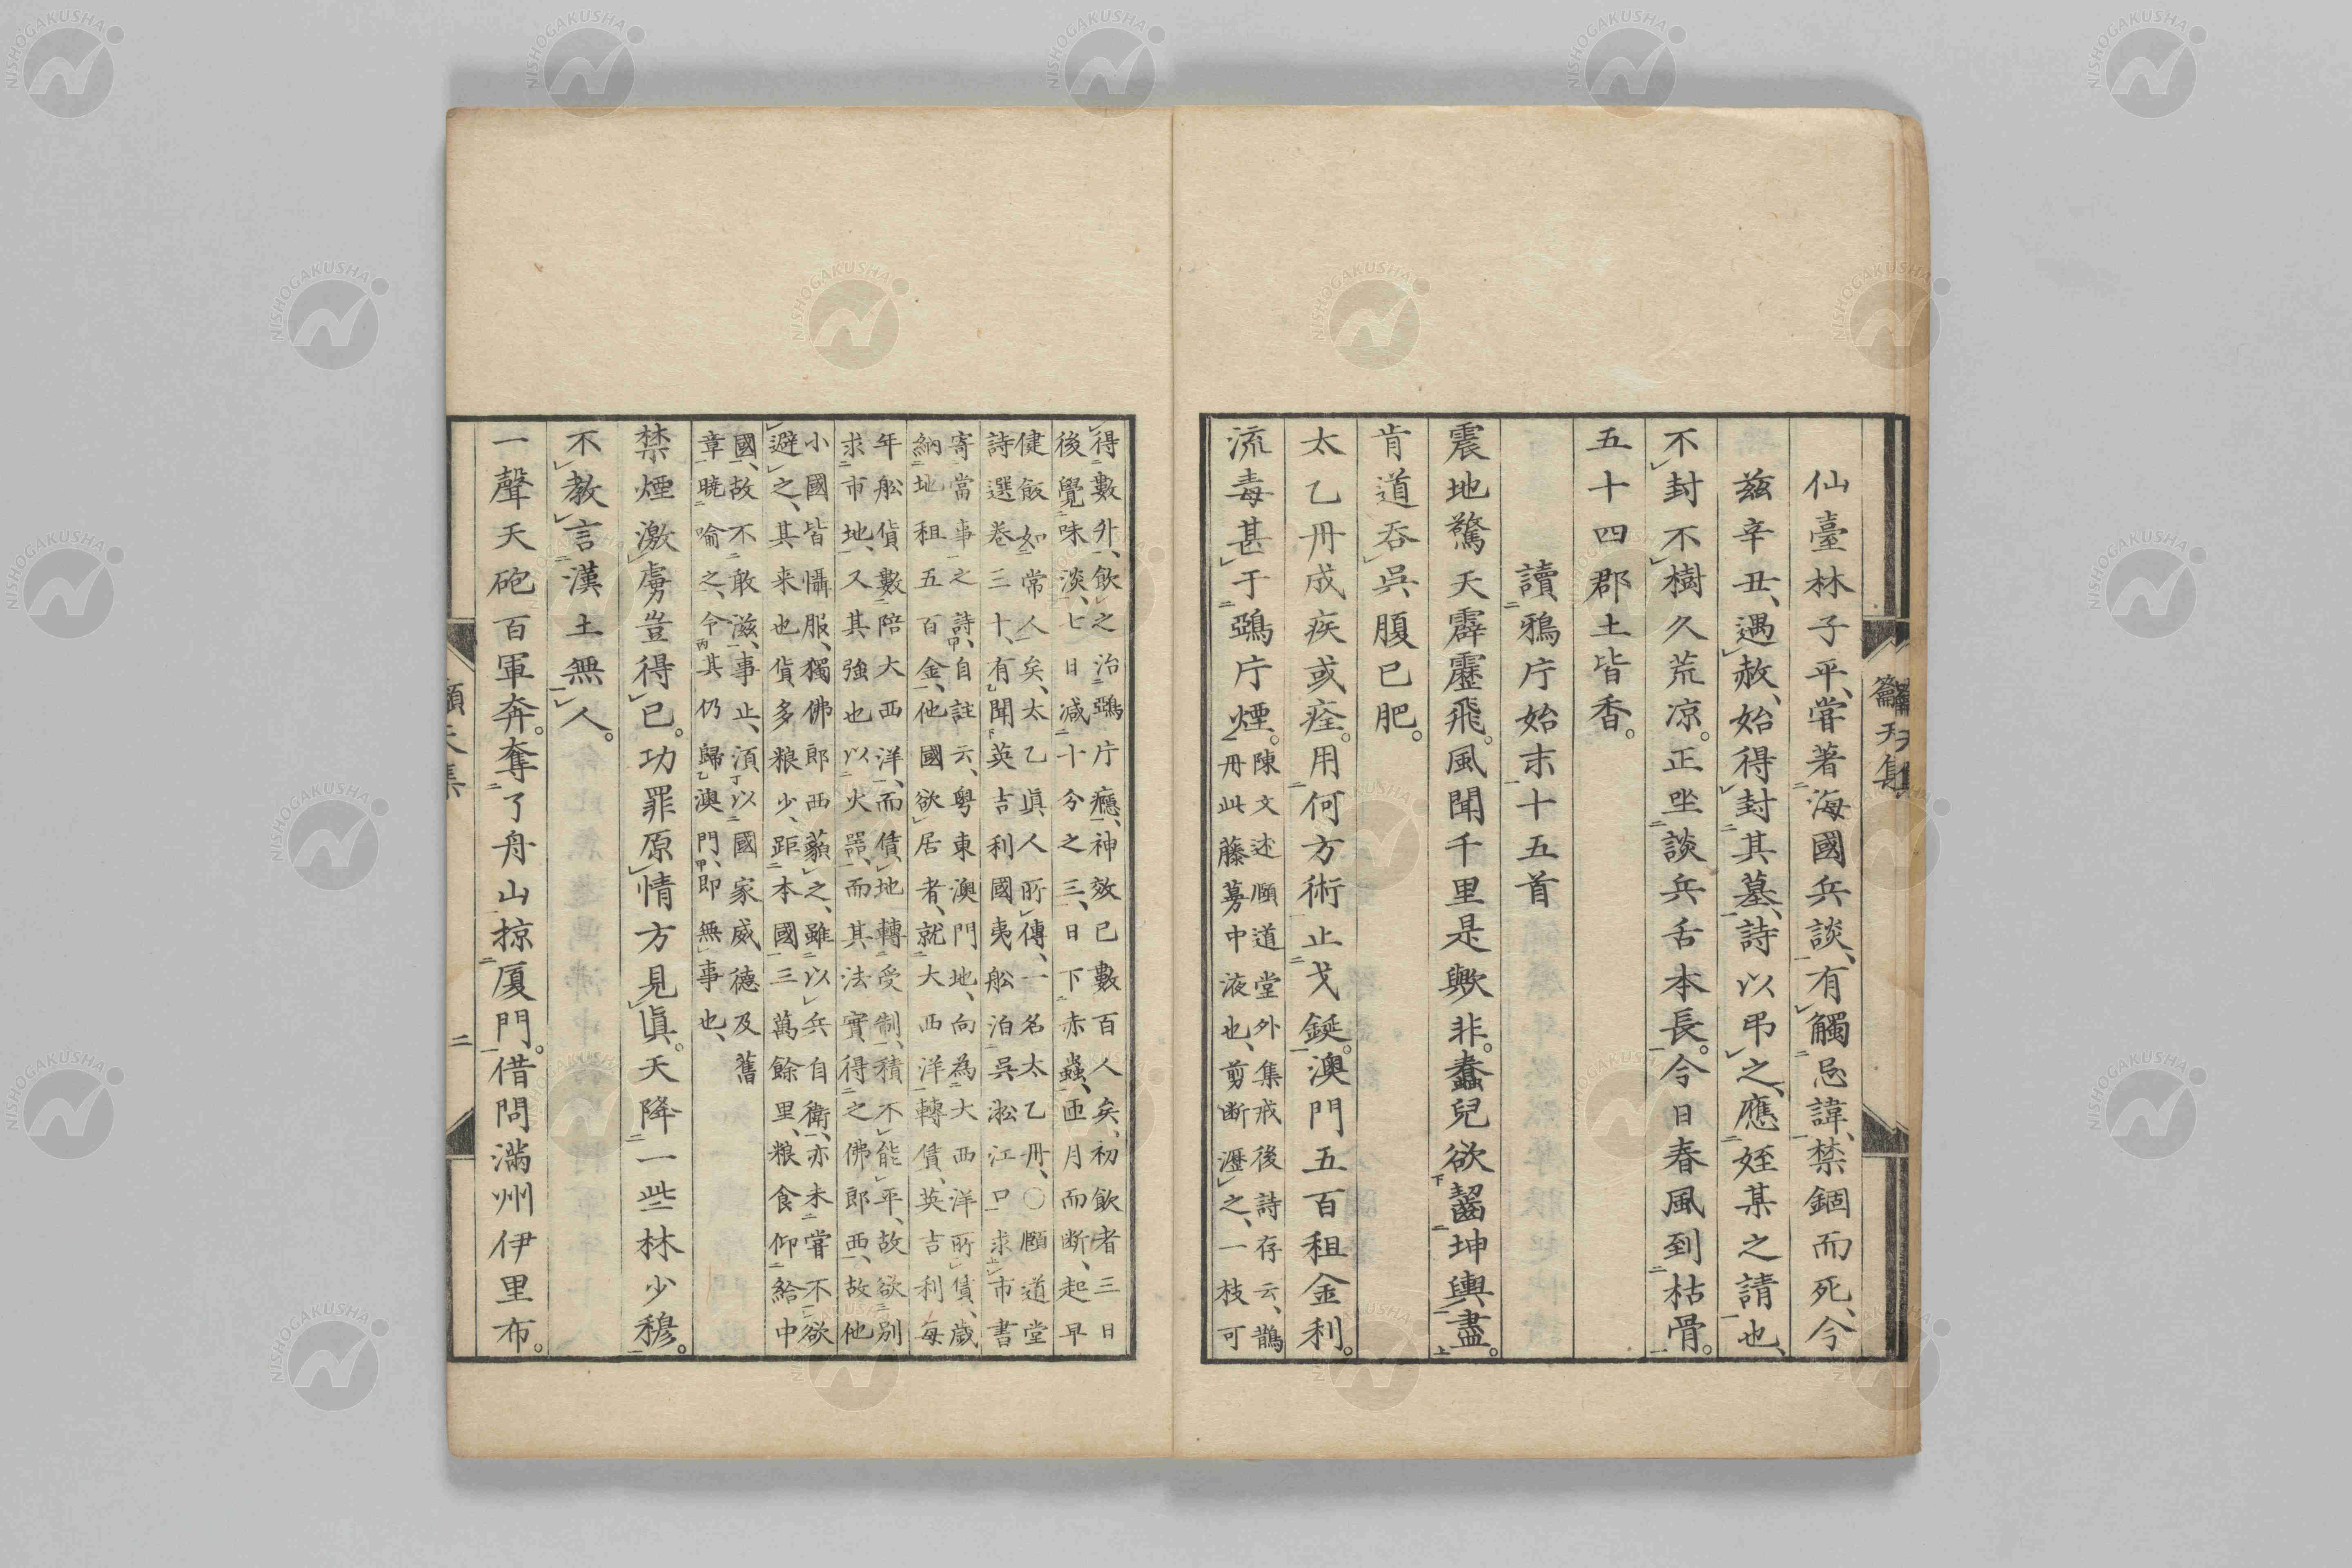 仙臺林子平、嘗著海國兵談、有觸忌諱、禁錮而死、今
茲辛丑、遇赦、始得封其墓、詩以弔之、應姪某之請也、
不封不樹久荒凉。正坐談兵舌本長。今日春風到枯骨。
五十四郡土皆香。
讀鴉片始末十五首
震地驚天霹靂飛。風聞千里是歟非。蠢兒欲齧坤輿盡。
肯道吞吳腹已肥。
太乙丹成疾或痊。用何方術止戈鋋。澳門五百租金利。
流毒甚于鴉片煙。
陳文述頤道堂外集戒後詩存云、鵲
丹此藤蔓中液也、剪断瀝之、一枝可
得數升、飲之治鴉片癮、神效已數百人矣、初飲者三日
後覺味淡、七日減十分之三、日下赤蟲、匝月而断、起早
健飯如常人矣、太乙眞人所傳、一名太乙丹、〇頤道堂
詩選卷三十、有聞英吉利國夷舩泊吳淞江口求市書
寄當事之詩、自註云、粵東澳門地、向為大西洋所賃、歲
納地租五百金、他國欲居者、就大西洋轉賃、英吉利每
年舩貨數陪大西洋、而賃地轉受制、積不能平、故欲別
求市地、又其強也以火器、而其法實得之佛郎西、故他
小國皆懾服、獨佛郎西藐之、雖以兵自衛、亦未嘗不欲
避之、其来也貨多粮少、距本國三萬餘里、粮食仰給中
國、故不敢滋事止、須以國家威德及舊
章曉喻之、令其仍歸澳門、即無事也、
禁煙激虜豈得已。功罪原情方見眞。天降一些林少穆。
不教言漢土無人。
一聲天砲百軍奔。奪了舟山掠厦門。借問滿州伊里布。
NISHOGAKUSHA